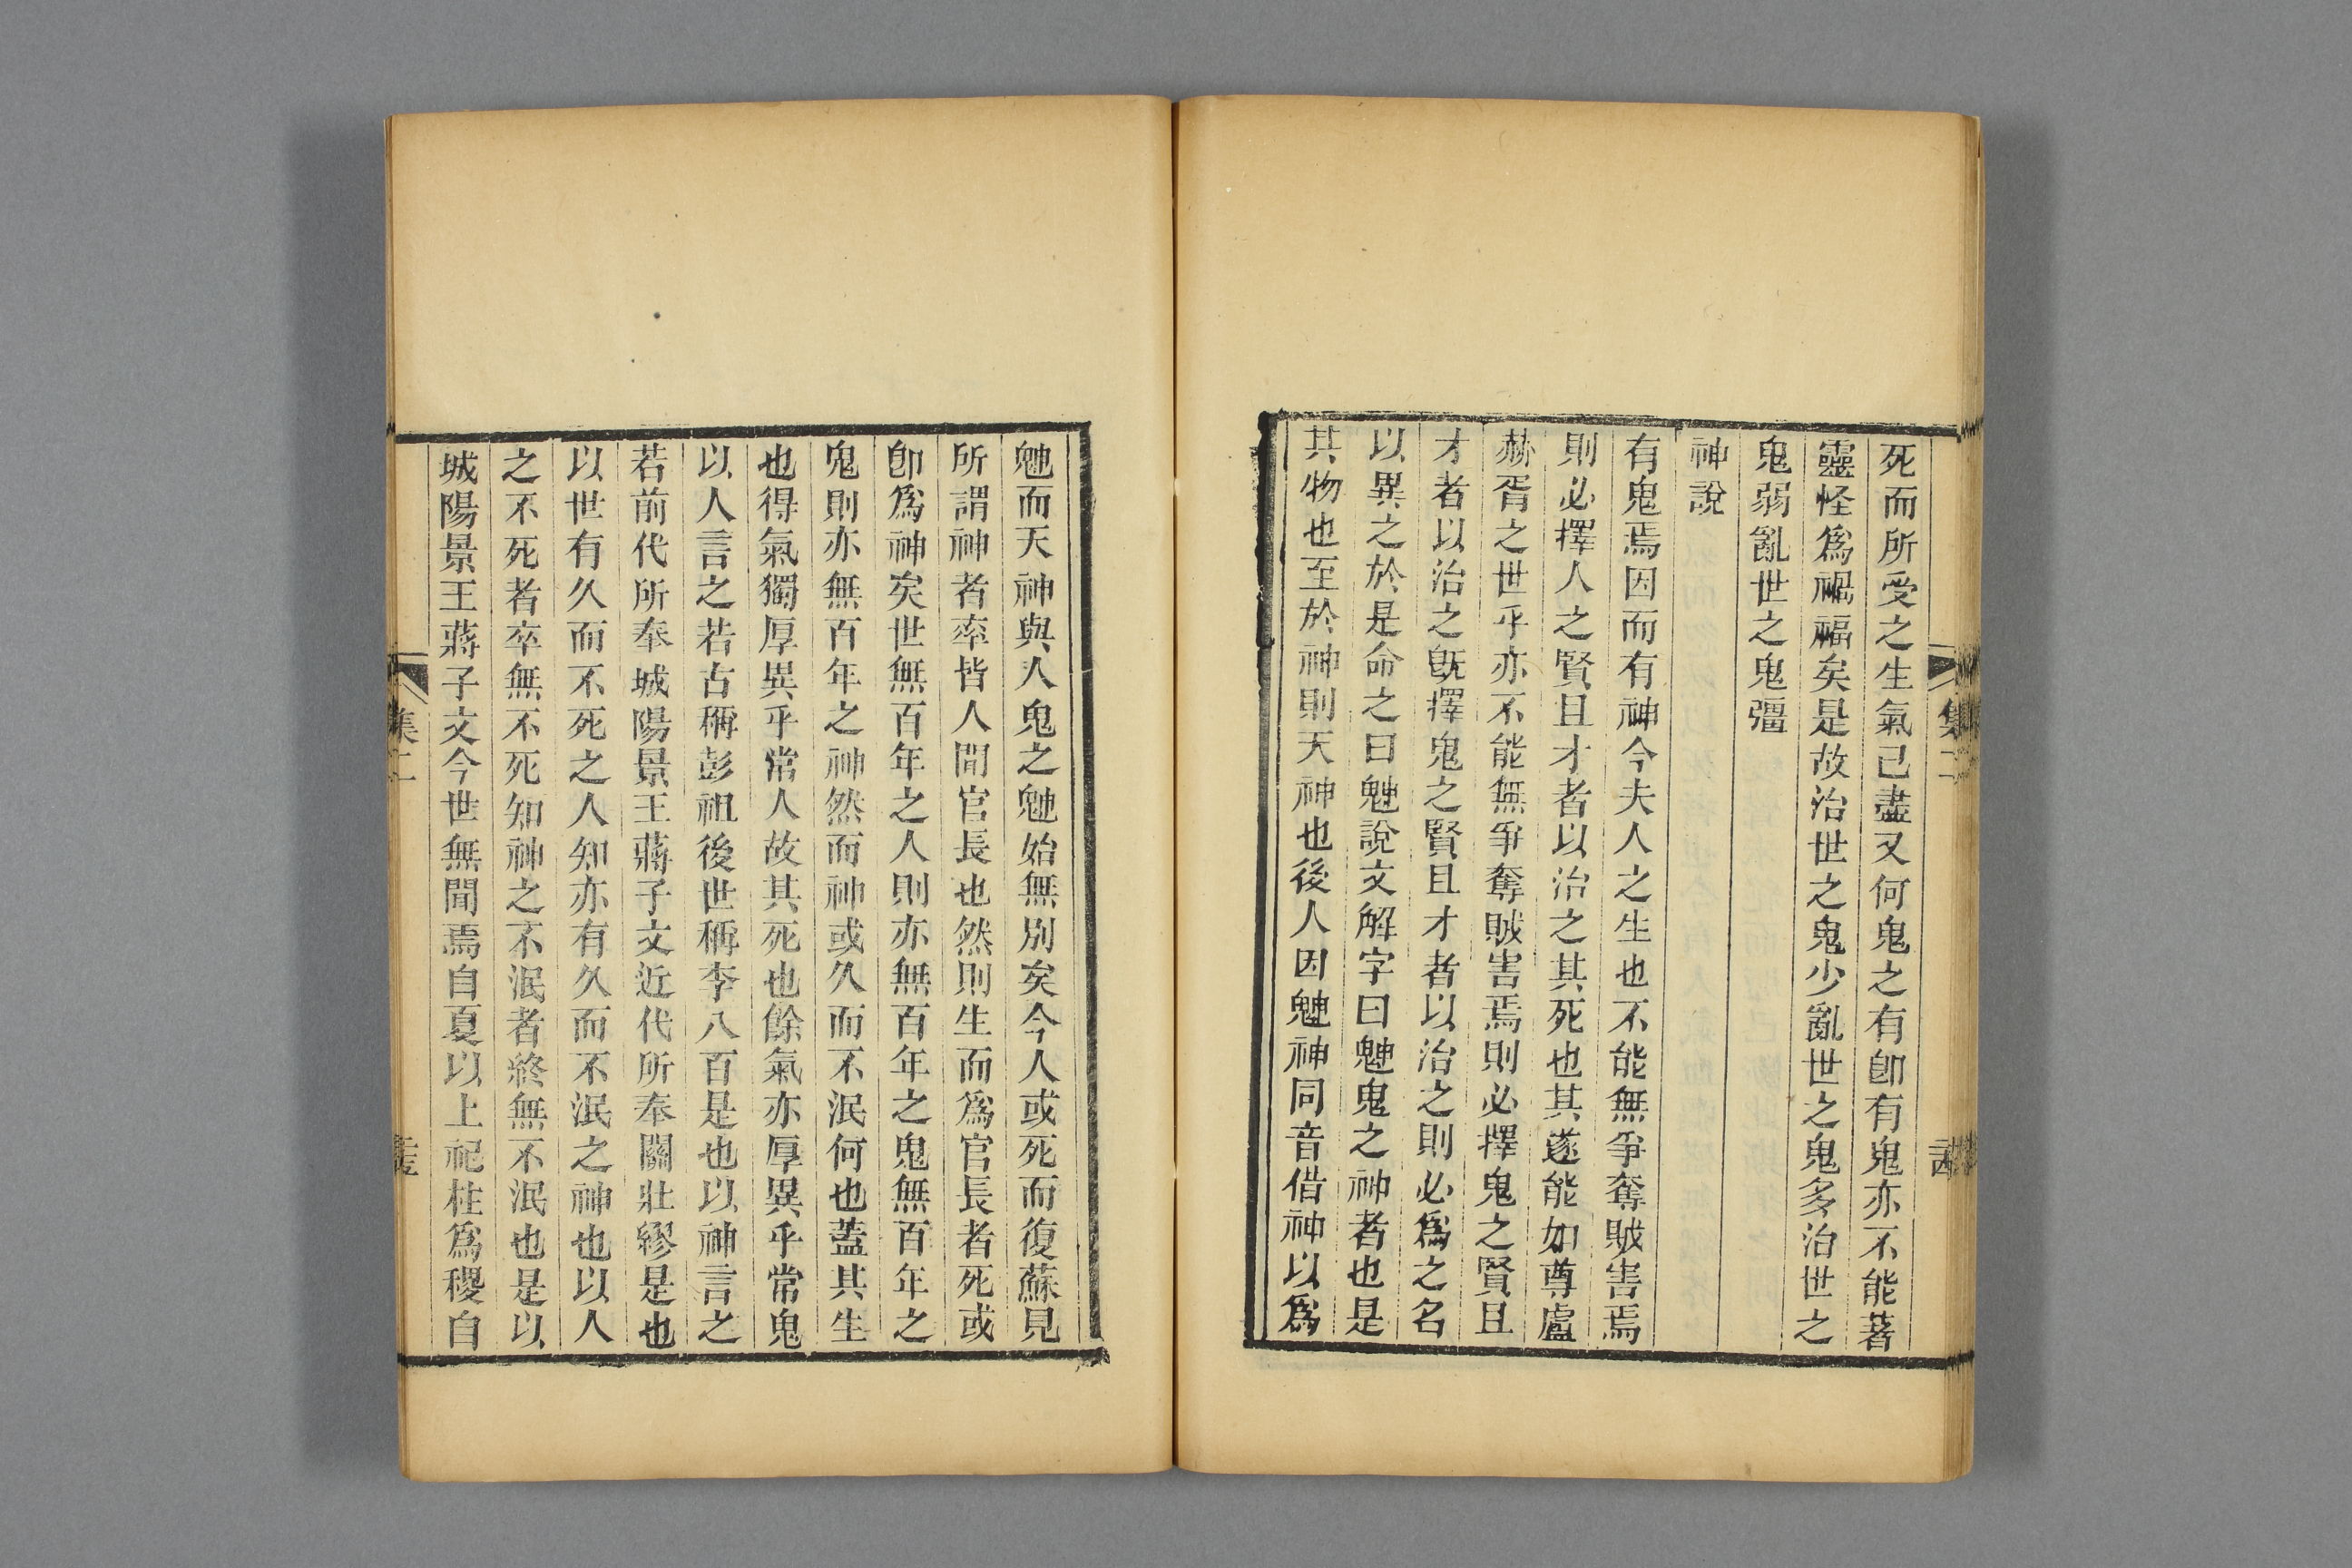 死而所受之生氣已盡又何鬼之有卽有鬼亦不能著
靈怪爲禍福矣是故治世之鬼少亂世之鬼多治世之
鬼弱亂世之鬼彊
神說
有鬼焉因而有神今夫人之生也不能無爭奪賊害焉
則必擇人之賢且才者以治之其死也其遂能如尊盧
赫胥之世乎亦不能無爭奪賊害焉則必擇鬼之賢且
才者以治之旣擇鬼之賢且才者以治之則必爲之名
以異之於是命之曰䰠說文解字曰䰠鬼之神者也是
其物也至於神則天神也後人因䰠神同音借神以爲
䰠而天神與人鬼之䰠始無別矣今人或死而復蘇見
所謂神者率皆人間官長也然則生而爲官長者死或
卽爲神矣世無百年之人則亦無百年之鬼無百年之
鬼則亦無百年之神然而神或久而不泯何也蓋其生
也得氣獨厚異乎常人故其死也餘氣亦厚異乎常鬼
以人言之若古稱彭祖後世稱李八百是也以神言之
若前代所奉城陽景王蔣子文近代所奉關壯繆是也
以世有久而不死之人知亦有久而不泯之神也以人
之不死者卒無不死知神之不泯者終無不泯也是以
城陽景王蔣子文今世無聞焉自夏以上祀柱爲稷自
集二